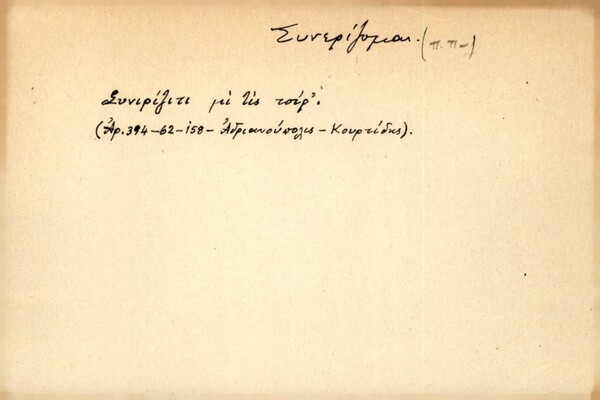 Συνερίζομαι. (π.π-)
Συνιρίζιτι μὶ τὶς τσέρ'.
(Ἀρ. 394-62-158- Ἀδριανούπολις - Κουρτίδης).